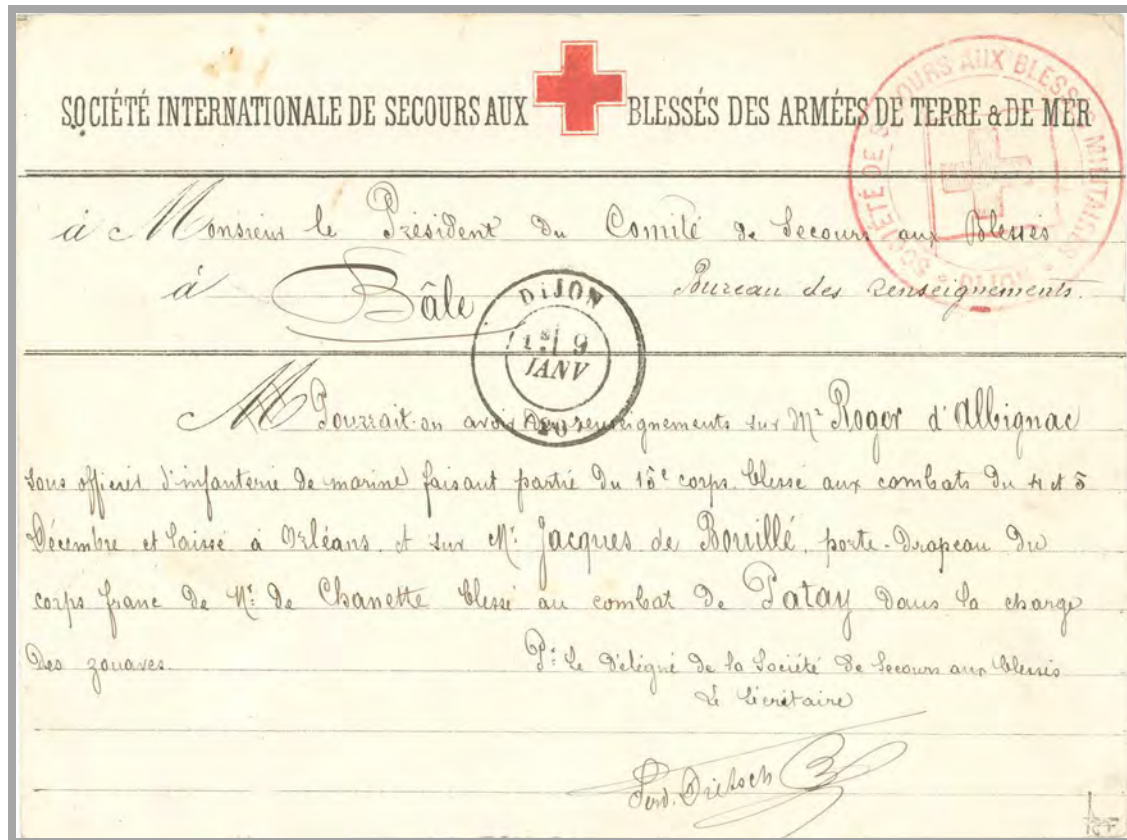 SOCIÉTÉ INTERNATIONALE DE SECOURS AUX BLESSÉS DES ARMÉES DE TERRE & DE MER
SOCIÉTÉ DE SECOURS AUX BLESSÉS MILITAIRES * DIJON *
à Monsieur le Président du Comité de Secours aux Blessés
à Bâle. Bureau des renseignements.
DIJON
9
JANV
M Pourrait-on avoir des renseignements sur Mr Roger d'Albignac
sous officier d'infanterie de marine faisant partie du 15e corps. blessé aux combats du 4 et 5
Décembre et laissé à Orléans. et sur Mr. Jacques de Bouillé, porte-drapeau du
corps franc de Mr. de Chanette blessé au combat de Patay dans la charge
des zouaves.
Pr. Le Délégué de la Société de Secours aux blessés
Le Secrétaire
Ferd. Dietsch